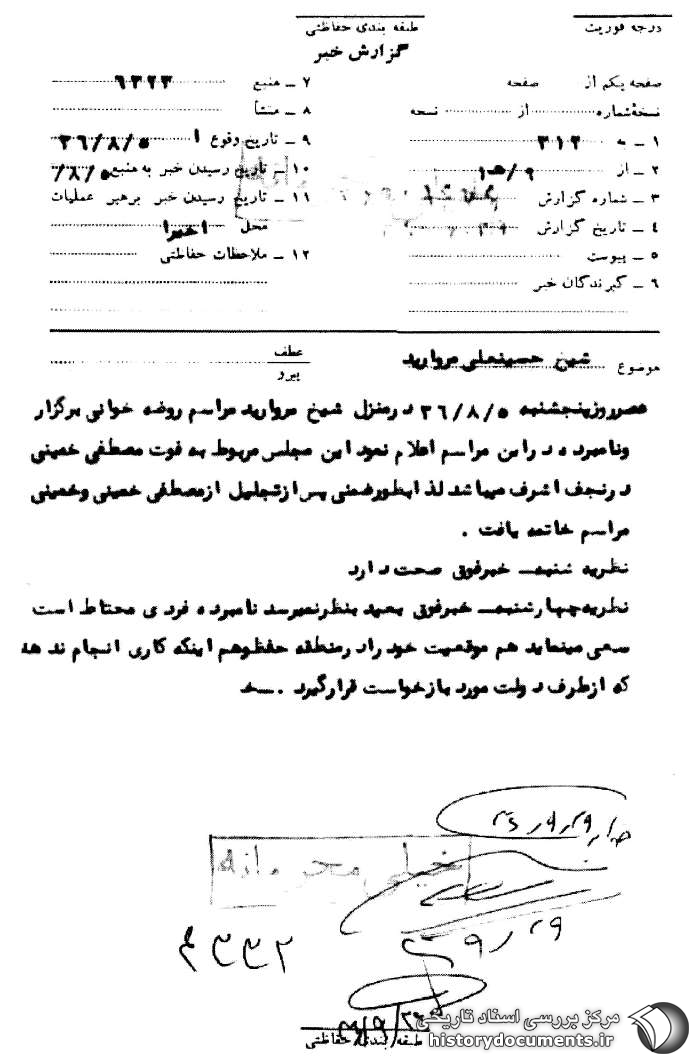 درجه فوریت
طبقه بندی حفاظتی
گزارش خبر
صفحه یکم از صفحه
نسخهٔ شماره از نسخه
۱ ــ به ۳۱۲
۲ ــ از
۳ ــ شماره گزارش
۴ ــ تاریخ گزارش
۵ ــ پیوست
۶ ــ گیرندگان خبر
۷ ــ منبع ۶۳۲۳
۸ ــ منشأ
۹ ــ تاریخ وقوع ۳۶/۸/۵
۱۰ ــ تاریخ رسیدن خبر به منبع ۸/۵/
۱۱ ــ تاریخ رسیدن خبر برهبر عملیات
محل اخیرا
۱۲ ــ ملاحظات حفاظتی
موضوع شیخ حسینعلی مروارید
عطف
پیرو
عصرروزپنجشنبه ۳۶/۸/۵ درمنزل شیخ مروارید مراسم روضه خوانی برگزار
ونامبرده دراین مراسم اعلام نمود این مجلس مربوط به فوت مصطفی خمینی
درنجف اشرف میباشد لذا بطورضمنی پس ازتجلیل ازمصطفی خمینی وخمینی
مراسم خاتمه یافت .
نظریه شنبه‌ــ خبرفوق صحت دارد
نظریه‌چهارشنبه‌ــ خبرفوق بعید بنظرنمیرسد نامبرده فردی محتاط است
سعی مینماید هم موقعیت خود رادرمنطقه حفظ‌وهم اینکه کاری انجام ندهد
که ازطرف دولت مورد بازخواست قرارگیرد .
خیلی محرمانه
طبقه بندی حفاظتی
مرکز بررسی اسناد تاریخی
historydocuments.ir